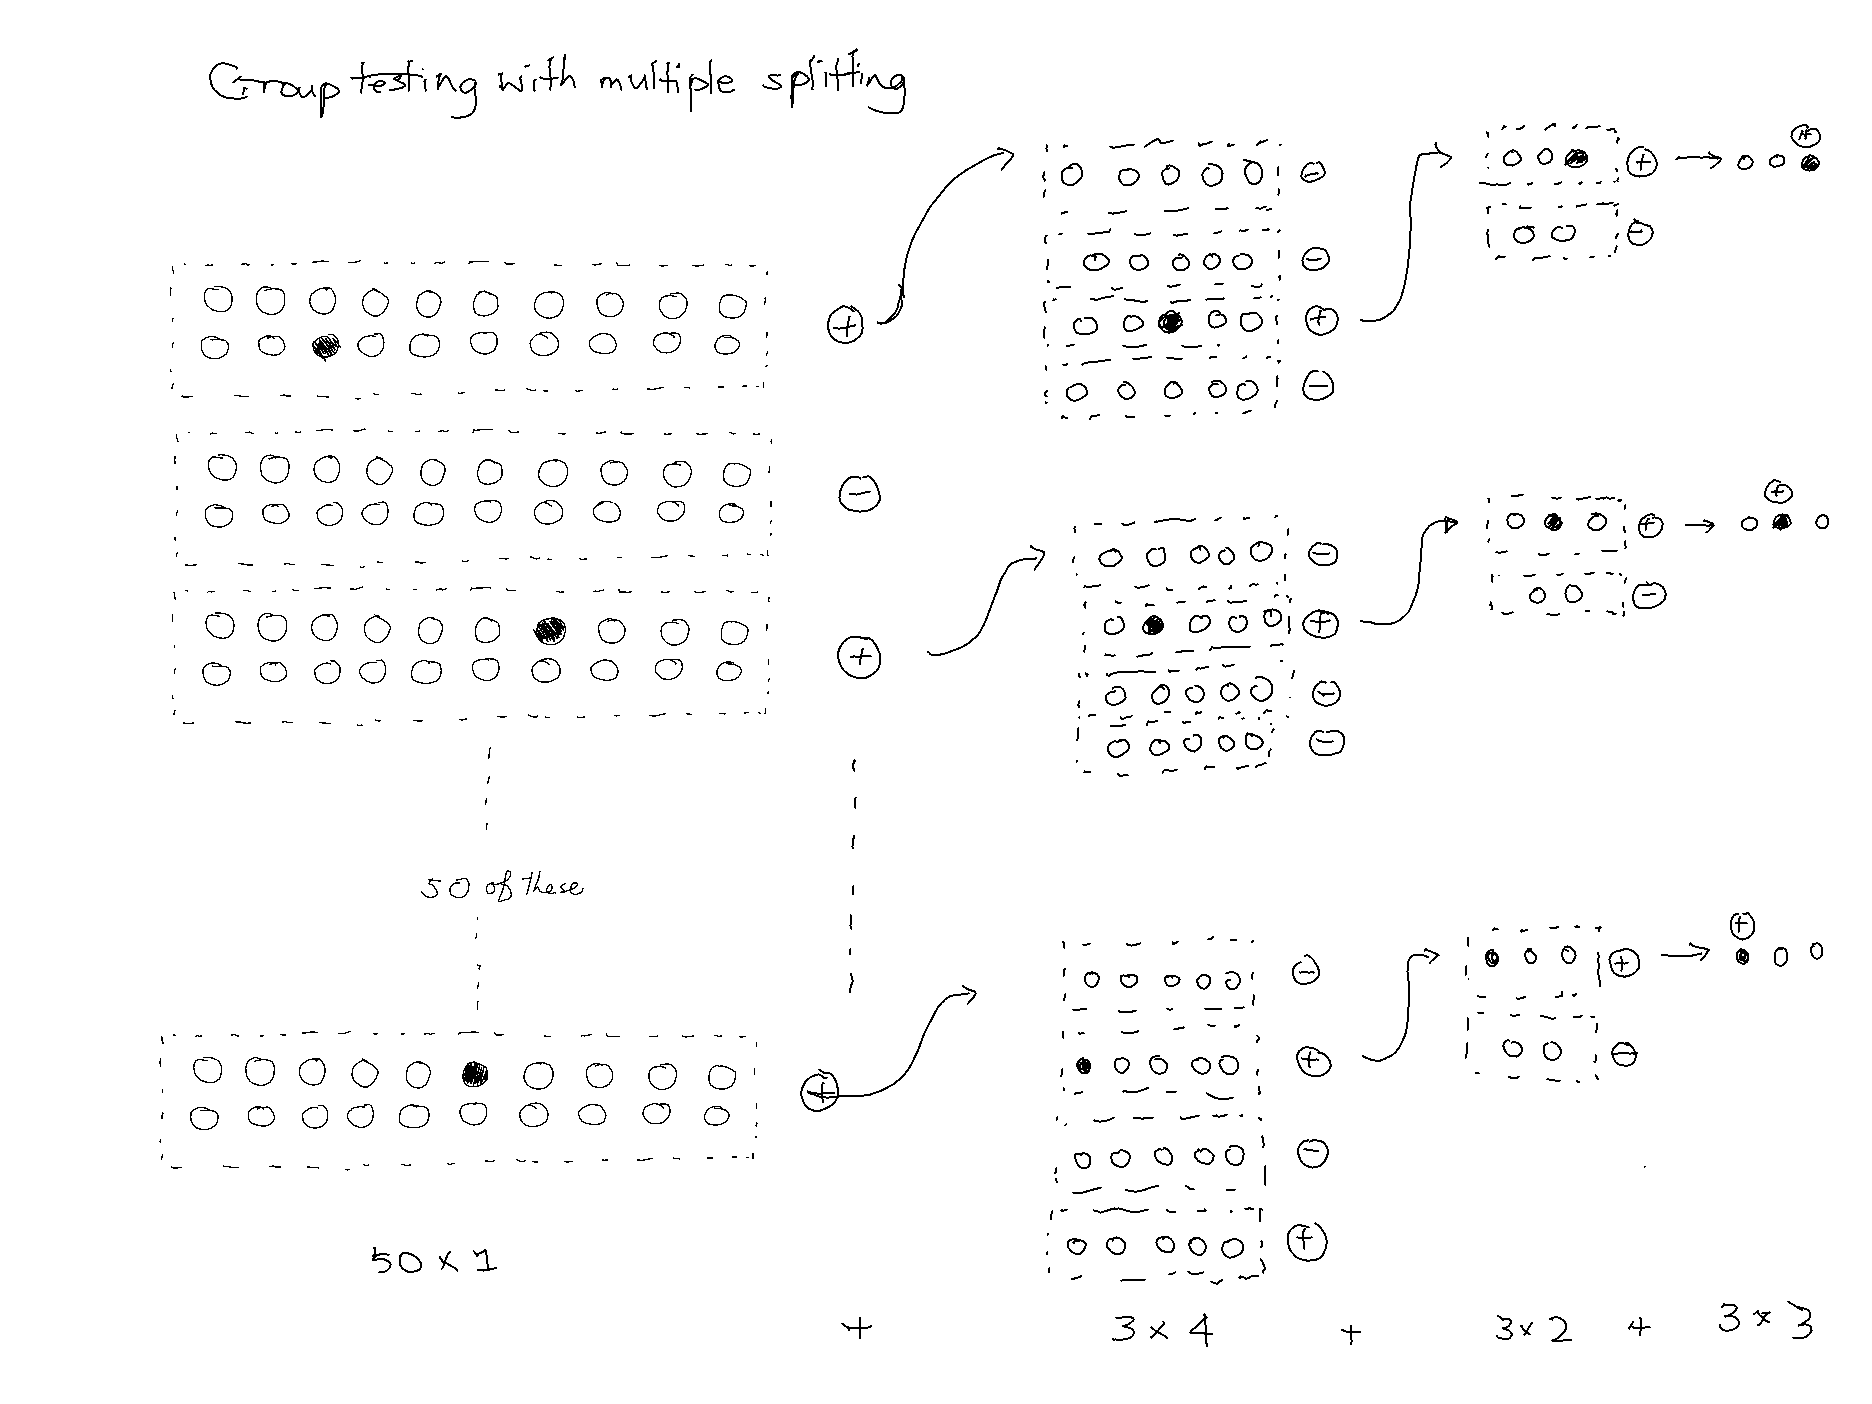 Group testing with multiple splitting
50 of these
50 × 1 + 3 × 4 + 3 × 2 + 3 × 3